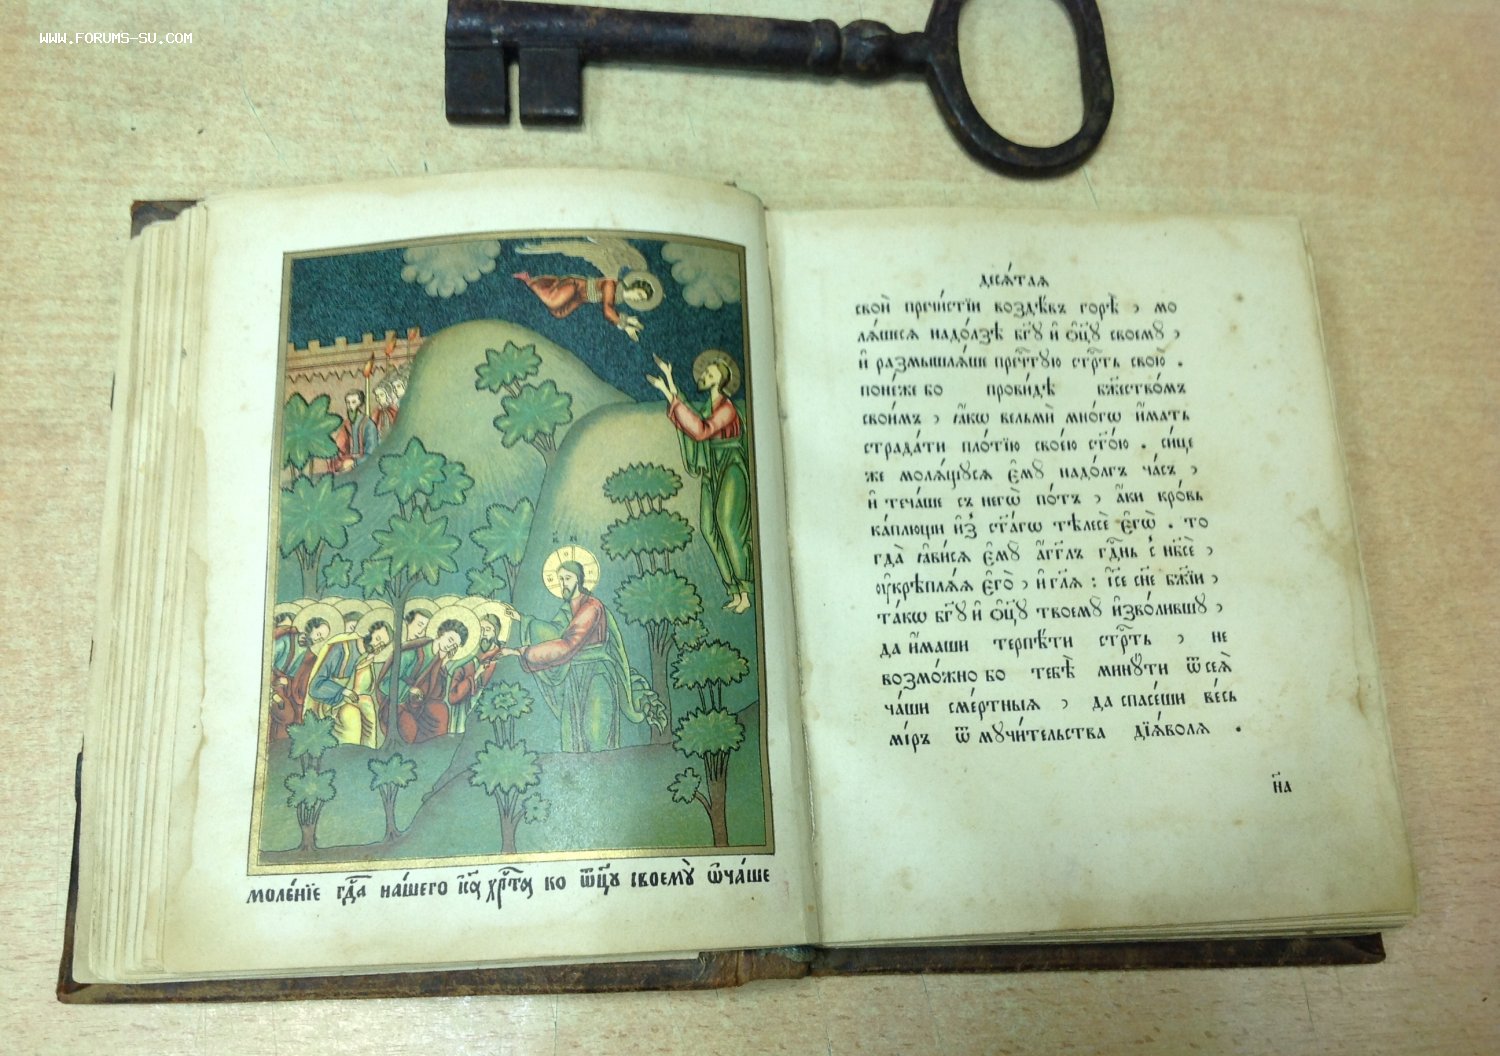 WWW.FORUMS-SU.COM
моле́нїе гдⷭ҇а на́шего і҆и҃са хрⷭ҇та̀ ко ѿц҃ꙋ̀ своемꙋ̀ ѡ҆ча́ше
десѧ́таѧ
своѝ пречи́стїи воздѣ́въ горѣ̀ , мо
лѧ́шесѧ надо́лзѣ бг҃ꙋ и҆ ѻ҆ц҃ꙋ своемꙋ̀ ,
и҆ размышлѧ́ше пречⷭ҇тꙋю стрⷭ҇ть свою̀ .
поне́же бо прови́дѣ бж҃ество́мъ
свои́мъ , ꙗ҆́кѡ вельмѝ мно́гѡ и҆́мать
страда́ти пло́тїю свое́ю ст҃о́ю . си́це
же молѧ́щꙋсѧ є҆мꙋ̀ надо́лгъ ча́съ ,
и҆ теча́ше съ негѡ̀ по́тъ , а҆́ки кро́вь
ка́плющи и҆з̾ ст҃а́гѡ тѣлесѐ є҆гѡ̀ . то
гда̀ ꙗ҆ви́сѧ є҆мꙋ̀ а҆́гг҃лъ гдⷭ҇нь с̾ нб҃сѐ ,
ᲂу҆крѣплѧ́ѧ є҆го̀ , и҆ гл҃ѧ : і҆и҃се сн҃е бж҃їи ,
та́кѡ бг҃ꙋ и҆ ѻ҆ц҃ꙋ твоемꙋ̀ и҆зво́лившꙋ ,
да и҆́маши терпѣ́ти стрⷭ҇ть , не
возмо́жно бо тебѣ̀ минꙋ́ти ѿ сеѧ̀
ча́ши сме́ртныѧ , да спасе́ши ве́сь
мі́ръ ѿ мꙋчи́тельства дїѧ́волѧ .
и҆́на